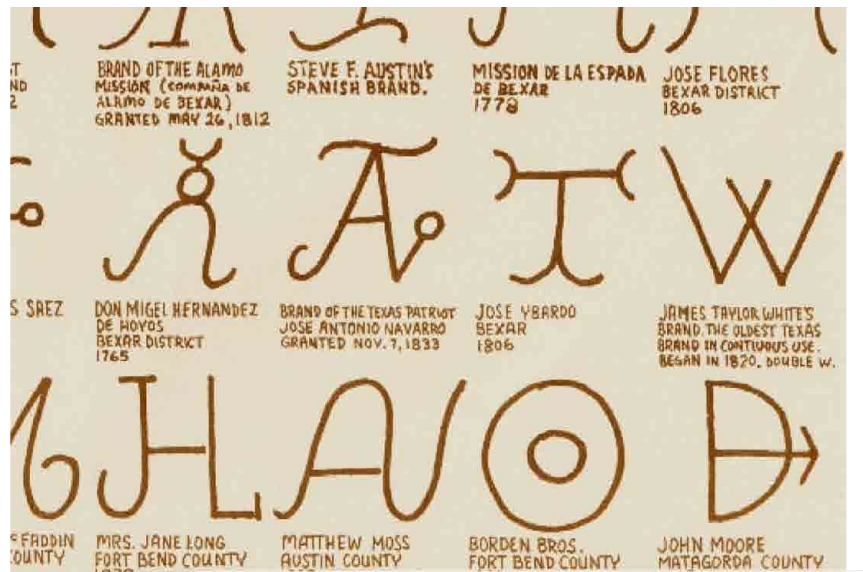 T
ND
2
BRAND OF THE ALAMO
MISSION (COMPAÑIA DE
ALAMO DE BEXAR)
GRANTED MAY 26, 1812
STEVE F. AUSTIN'S
SPANISH BRAND.
MISSION DE LA ESPADA
DE BEXAR
1778
JOSE FLORES
BEXAR DISTRICT
1806
S SAEZ
DON MIGEL HERNANDEZ
DE HOYOS
BEXAR DISTRICT
1765
BRAND OF THE TEXAS PATRIOT
JOSE ANTONIO NAVARRO
GRANTED NOV. 7, 1833
JOSE YBARDO
BEXAR
1806
JAMES TAYLOR WHITE'S
BRAND. THE OLDEST TEXAS
BRAND IN CONTIUOUS USE.
BEGAN IN 1820. DOUBLE W.
CFADDIN
OUNTY
MRS. JANE LONG
FORT BEND COUNTY
MATTHEW MOSS
AUSTIN COUNTY
BORDEN BROS.
FORT BEND COUNTY
JOHN MOORE
MATAGORDA COUNTY